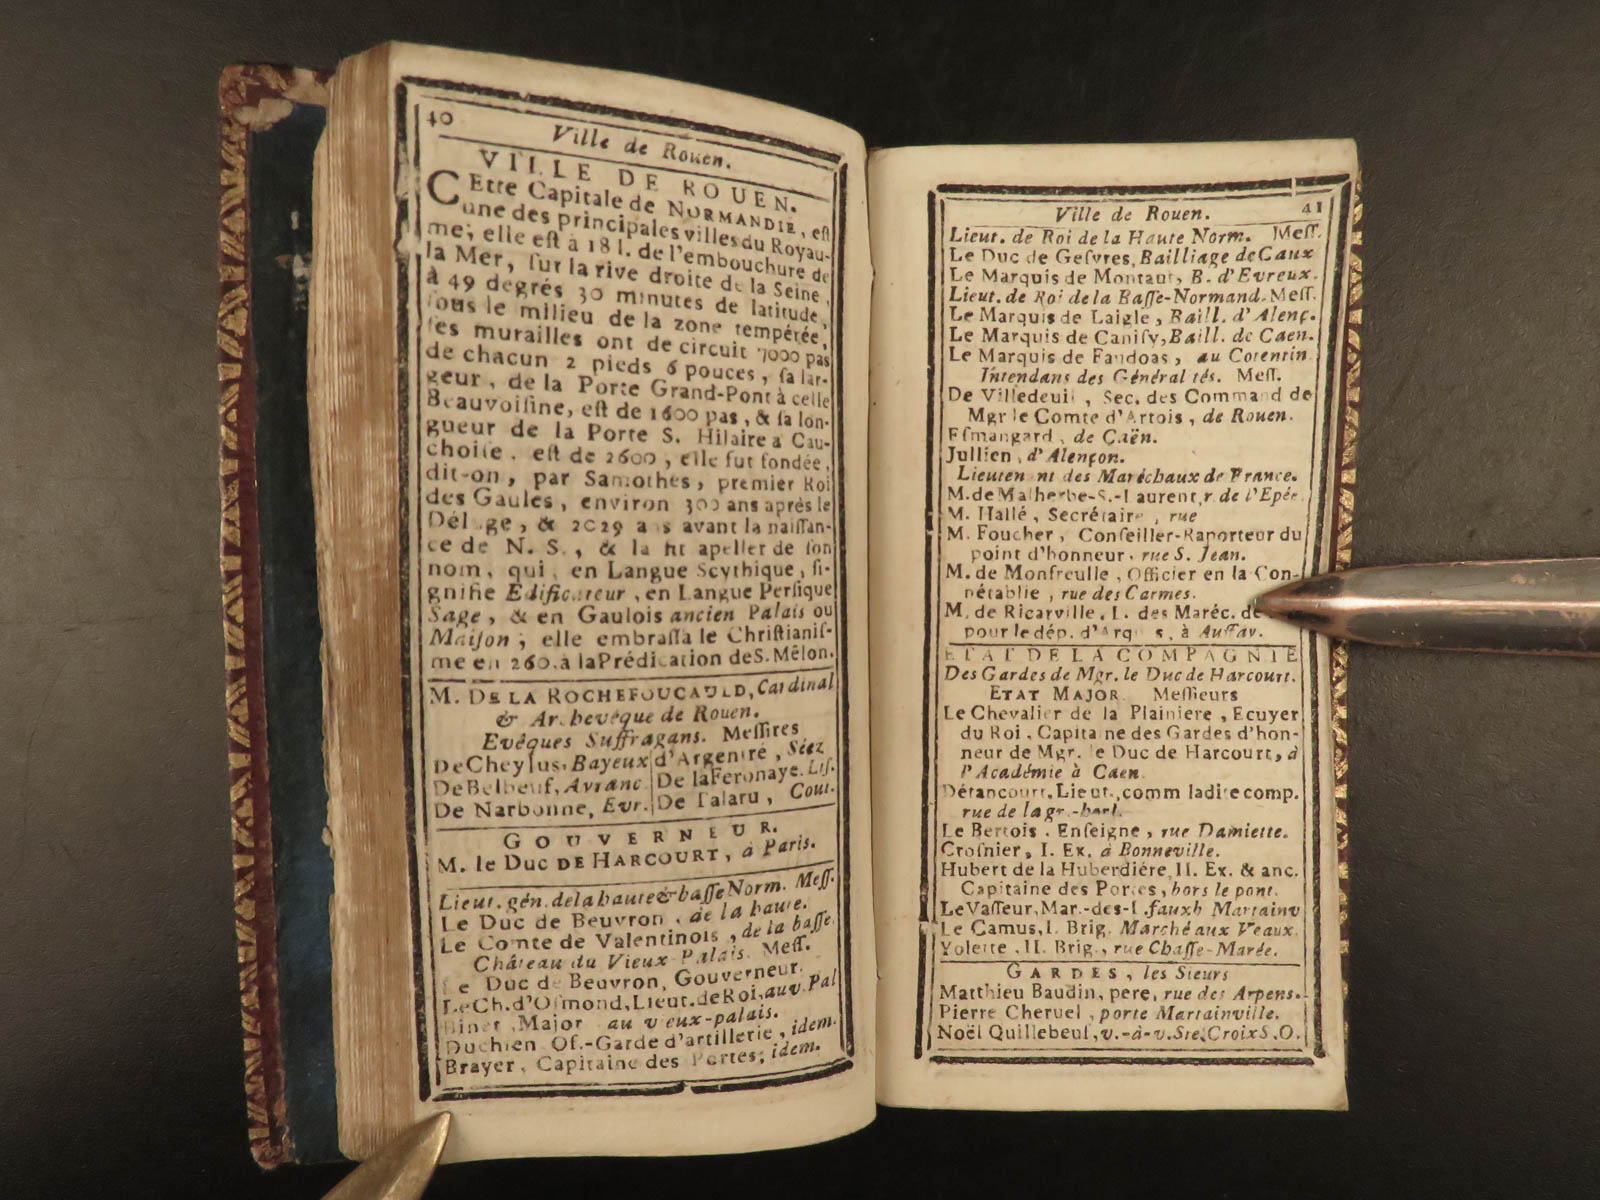 40
Ville de Rouen.
VILLE DE ROUEN.
CEtte Capitale de NORMANDIE, eſt
une des principales villes du Royau-
me; elle eſt à 18 l. de l'embouchure de
la Mer, ſur la rive droite de la Seine,
à 49 degrés 30 minutes de latitude,
ſous le milieu de la zone tempérée,
ſes murailles ont de circuit 7000 pas
de chacun 2 pieds 6 pouces, ſa lar-
geur, de la Porte Grand-Pont à celle
Beauvoiſine, eſt de 1600 pas, & ſa lon-
gueur de la Porte S. Hilaire a Cau-
choiſe, eſt de 2600, elle fut fondée,
dit-on, par Samothès, premier Roi
des Gaules, environ 300 ans après le
Déluge, & 2029 ans avant la naiſſan-
ce de N. S., & la fit apeller de ſon
nom, qui, en Langue Scythique, ſi-
gnifie Edificateur, en Langue Perſique
Sage, & en Gaulois ancien Palais ou
Maiſon; elle embraſſa le Chriſtianiſ-
me en 260. à la Prédication de S. Mêlon.
M. DE LA ROCHEFOUCAULD, Cardinal
& Archevêque de Rouen.
Evêques Suffragans. Meſſires
De Cheylus, Bayeux d'Argentré, Séez
De Belbeuf, Avranc. De la Feronaye. Liſ.
De Narbonne, Evr. De Talaru, Cout.
GOUVERNEUR.
M. le Duc DE HARCOURT, à Paris.
Lieut. gén. de la haute & baſſe Norm. Meſſ.
Le Duc de Beuvron, de la haute.
Le Comte de Valentinois, de la baſſe.
Château du Vieux-Palais. Meſſ.
Le Duc de Beuvron, Gouverneur.
Le Ch. d'Oſmond, Lieut. de Roi, au v. Pal
Binet, Major au vieux-palais.
Duchien Of.-Garde d'artillerie, idem.
Brayer, Capitaine des Portes, idem.
Ville de Rouen. 41
Lieut. de Roi de la Haute Norm. Meſſ.
Le Duc de Geſvres, Bailliage de Caux
Le Marquis de Montaut, B. d'Evreux.
Lieut. de Roi de la Baſſe-Normand. Meſſ.
Le Marquis de Laigle, Baill. d'Alenç.
Le Marquis de Caniſy, Baill. de Caen.
Le Marquis de Faudoas, au Cotentin
Intendans des Généralités. Meſſ.
De Villedeuil, Sec. des Command de
Mgr le Comte d'Artois, de Rouen.
Eſmangard, de Caën.
Jullien, d'Alençon.
Lieutenant des Maréchaux de France.
M. de Malherbe-S.-Laurent, r. de l'Epée.
M. Hallé, Secrétaire, rue
M. Foucher, Conſeiller-Raporteur du
point d'honneur, rue S. Jean.
M. de Monfreulle, Officier en la Con-
nétablie, rue des Carmes.
M. de Ricarville, L. des Maréc. de
pour le dép. d'Arques, à Auffay.
ETAT DE LA COMPAGNIE
Des Gardes de Mgr. le Duc de Harcourt.
ETAT MAJOR. Meſſieurs
Le Chevalier de la Plainiere, Ecuyer
du Roi, Capitaine des Gardes d'hon-
neur de Mgr. le Duc de Harcourt, à
l'Académie à Caen.
Détancourt, Lieut., comm ladite comp.
rue de la gr.-horl.
Le Bertois, Enſeigne, rue Damiette.
Croſnier, I. Ex. à Bonneville.
Hubert de la Huberdiére, II. Ex. & anc.
Capitaine des Portes, hors le pont.
Le Vaſſeur, Mar.-des-l fauxb Martainv
Le Camus, I. Brig. Marché aux Veaux.
Yolette, II. Brig., rue Chaſſe-Marée.
GARDES, les Sieurs
Matthieu Baudin, pere, rue des Arpens.
Pierre Cheruel, porte Martainville.
Noël Quillebeuf, v.-à-v. Ste. Croix S. O.